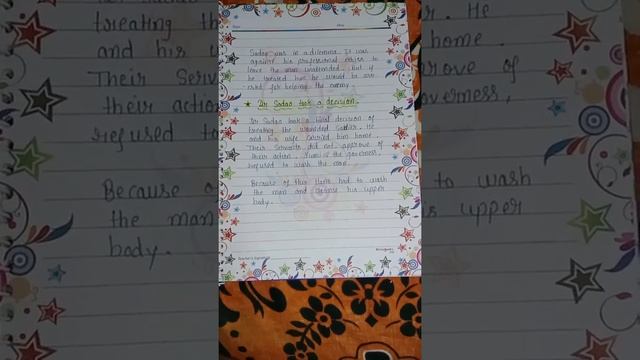 Sadao was in a dilemma. It was
against his professional ethics to
leave the man unattended. But if
he treated him he would be arr
ested for helping the enemy.
★ Dr Sadao took a decision.
Dr Sadao took a final decision of
treating the wounded soldier. He
and his wife carried him home.
Their Servants did not approve of
their action. Yumi the governess,
refused to wash the man.
Because of this Hana had to wash
the man and cleanse his upper
body.
Teacher's Signature